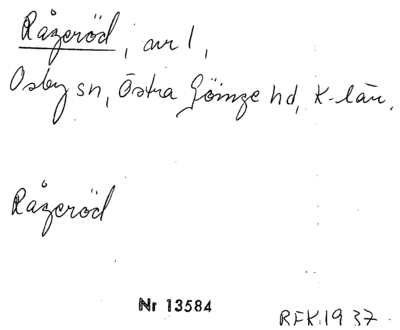 Råzeröd, avr 1,
Osby sn, Östra Göinge hd, K-län.
Råzeröd
Nr 13584
RFK 1937